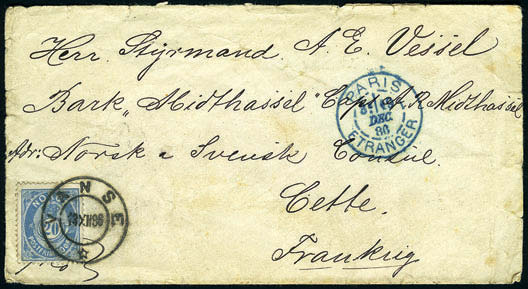 Herr Styrmand A. E. Vessel
Bark "Midthassel" Capt. A. R. Midthassel
Adr: Norsk & Svensk Consul
Cette.
Frankrig
PARIS
DEC.
86
ETRANGER
VANSE
13 XII 86
20